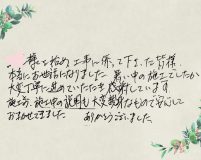 様を始め、工事に係って下さった皆様
本当にお世話になりました。暑い中の施工でしたが
大変丁寧に進めていただき感謝しています。
施工前、施工中の説明も大変親切なもので安心して
おまかせできました。ありがとうございました。